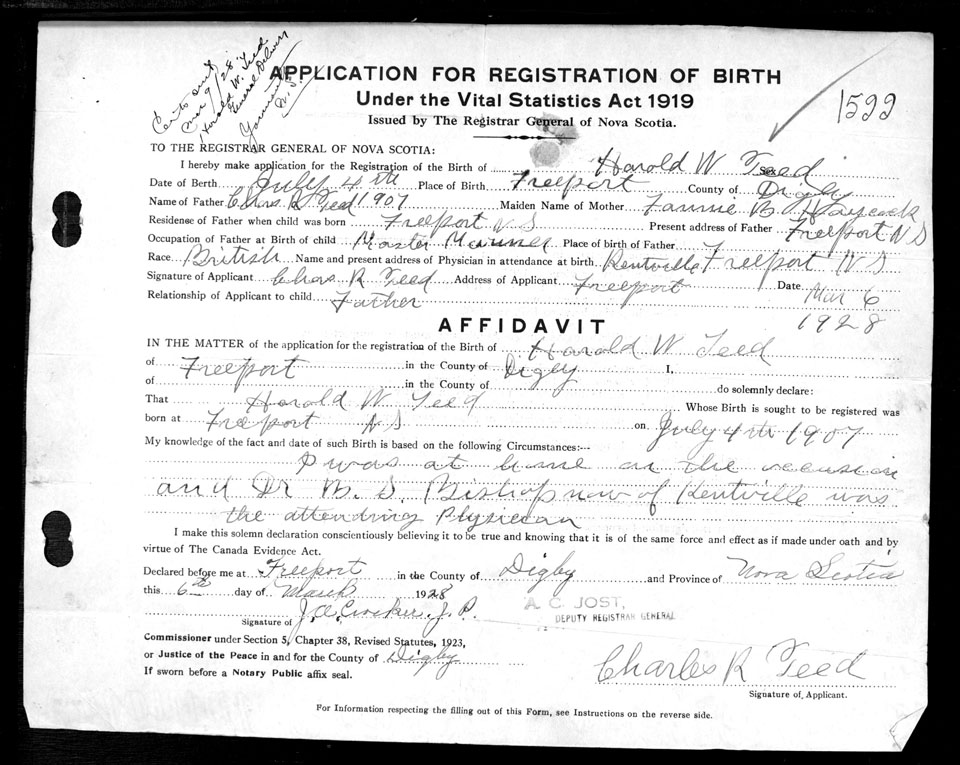 Mar 9/28
Harold W. Teed
General Delivery
Yarmouth
N.S.
1599
APPLICATION FOR REGISTRATION OF BIRTH
Under the Vital Statistics Act 1919
Issued by The Registrar General of Nova Scotia.
TO THE REGISTRAR GENERAL OF NOVA SCOTIA:
I hereby make application for the Registration of the Birth of Harold W Teed
Date of Birth July 4th Place of Birth Freeport County of Digby
Name of Father Chas R Teed 1907 Maiden Name of Mother Fannie B Haycock
Residense of Father when child was born Freeport N S Present address of Father Freeport N S
Occupation of Father at Birth of child Master Mariner Place of birth of Father
Race British Name and present address of Physician in attendance at birth Kentville Freeport N S
Signature of Applicant Chas R Teed Address of Applicant Freeport Date Mar 6
Relationship of Applicant to child Father 1928
AFFIDAVIT
IN THE MATTER of the application for the registration of the Birth of Harold W Teed
of Freeport in the County of Digby I,
of in the County of do solemnly declare:
That Harold W Teed Whose Birth is sought to be registered was
born at Freeport N S on July 4th 1907
My knowledge of the fact and date of such Birth is based on the following Circumstances:--
I was at home on the occasion
and Dr B. S. Bishop now of Kentville was
the attending Physician
I make this solemn declaration conscientiously believing it to be true and knowing that it is of the same force and effect as if made under oath and by
virtue of The Canada Evidence Act.
Declared before me at Freeport in the County of Digby and Province of Nova Scotia
this 6th day of March 1928
A. C. JOST,
DEPUTY REGISTRAR GENERAL
Signature of J. A. Crocker. J. P.
Commissioner under Section 5, Chapter 38, Revised Statutes, 1923,
or Justice of the Peace in and for the County of Digby
If sworn before a Notary Public affix seal.
Charles R Teed
Signature of Applicant.
For Information respecting the filling out of this Form, see Instructions on the reverse side.